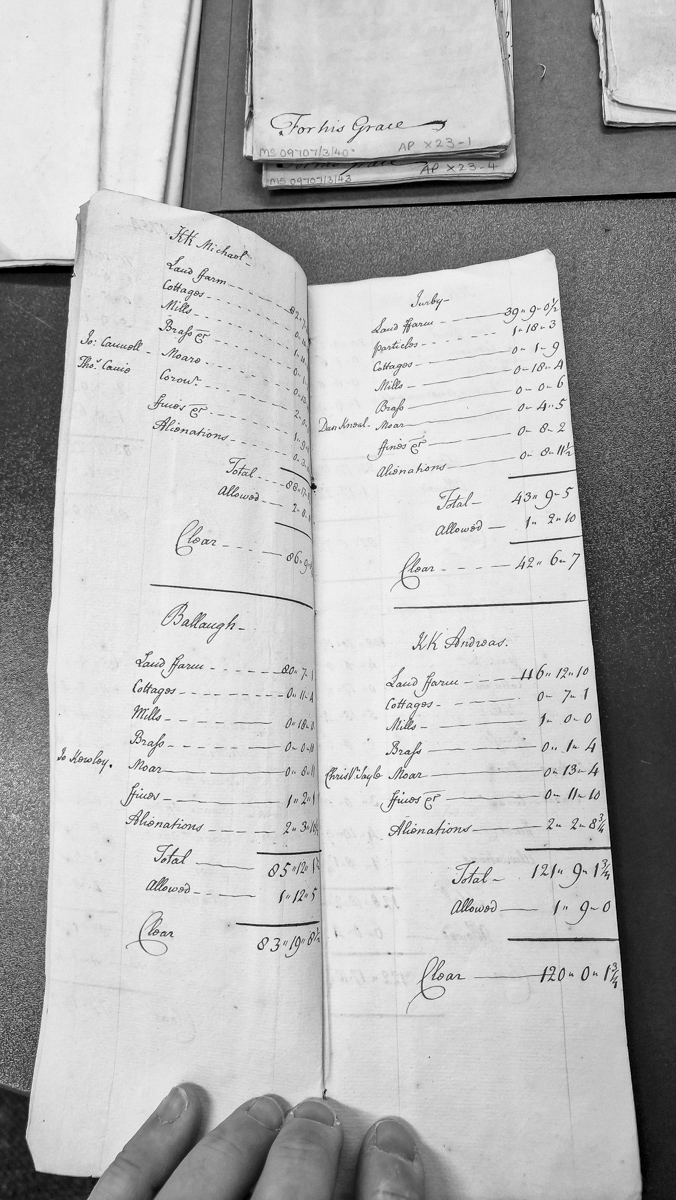 For his Grace
MS 09707/3/40
AP X23-1
MS 09707/3/43
AP X23-4
KK Michael
Land ffarm
Cottages
Mills
Brass &c
Jo: Cannell Moare
Tho:s Caine Corowr
ffines &c
Alienations
Total
Allowed
Clear
Ballaugh
Land ffarm 80" 7" 1
Cottages 0" 11" 4
Mills
Brass
Jo Kewley. Moar
ffines
Alienations
Total
Allowed 1" 12" 5
Clear 83" 19" 8½
Jurby
Land ffarm 39" 9" 0½
particles 1" 18" 3
Cottages 0" 1" 9
Mills 0" 18" 4
Brass 0" 0" 6
Dan Kneal. Moar 0" 4" 5
ffines &c 0" 8" 2
Alienations 0" 8" 11½
Total 43" 9" 5
Allowed 1" 2" 10
Clear 42" 6" 7
KK Andreas.
Land ffarm 116" 12" 10
Cottages 0" 7" 1
Mills 1" 0" 0
Brass 0" 1" 4
Chris Sayle Moar 0" 13" 4
ffines &c 0" 11" 10
Alienations 2" 2" 8¾
Total 121" 9" 1¾
Allowed 1" 9" 0
Clear 120" 0" 1¾